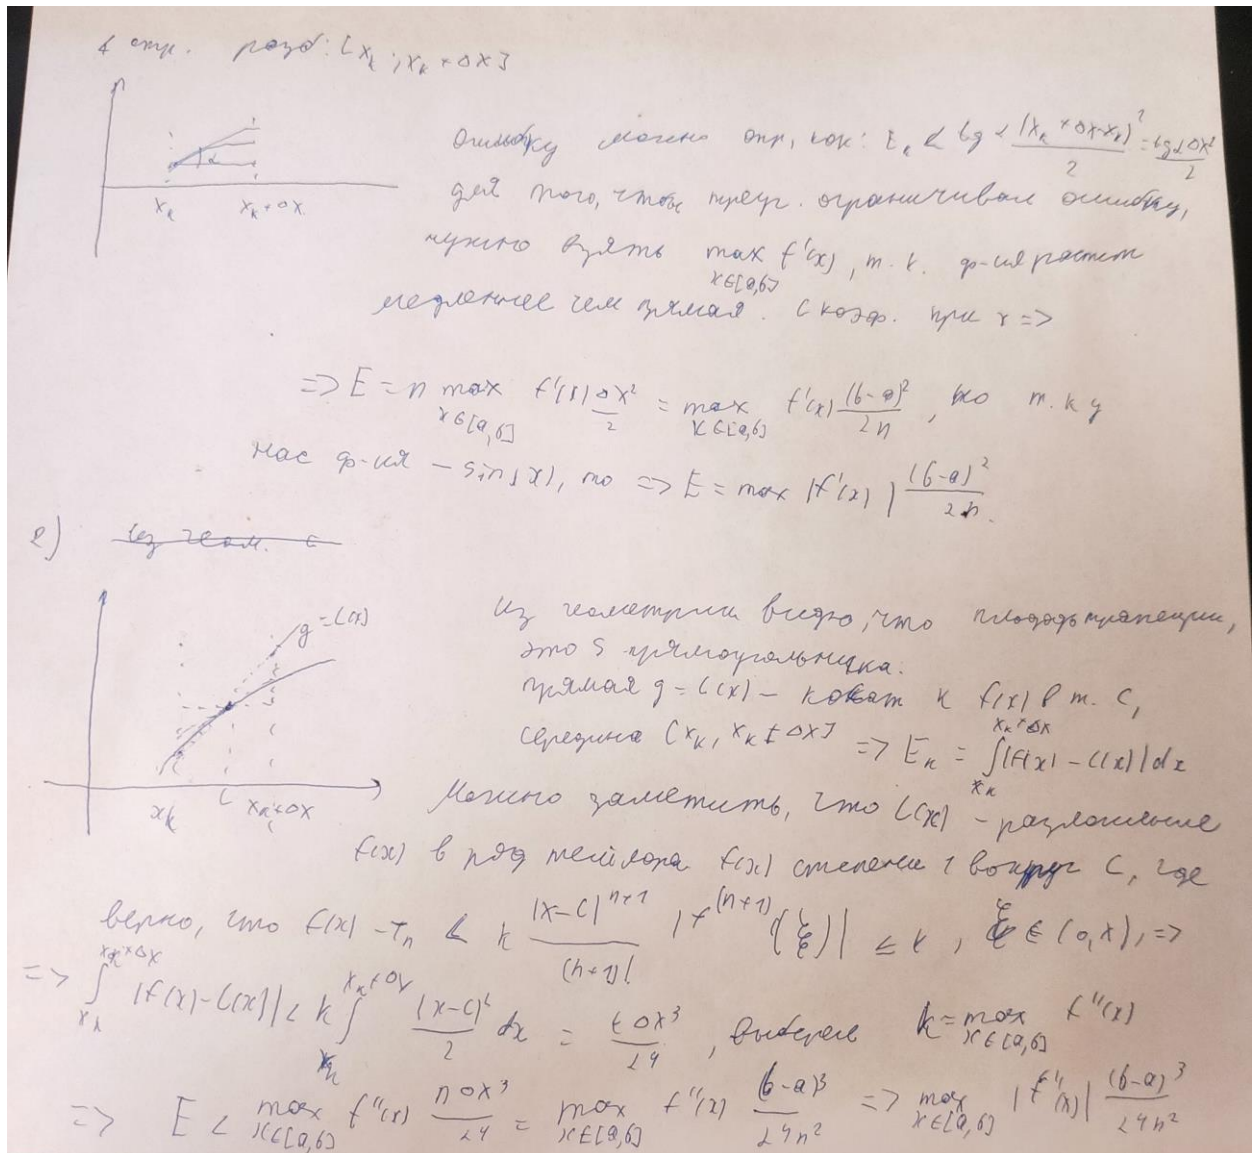 стр. разб: [x_k ; x_k + Δx]
x_k x_k + Δx
α
Ошибку можно опр, как: E_k < tg α (x_k + Δx - x_k)^2 / 2 = tg α Δx^2 / 2
для того, чтобы треуг. ограничивал ошибку,
нужно взять max_{x∈[a,b]} f'(x), т. к. ф-ия растет
медленнее чем прямая с коэф. при x =>
=> E = n max_{x∈[a,b]} f'(x) Δx^2 / 2 = max_{x∈[a,b]} f'(x) (b-a)^2 / 2n, но т. к у
нас ф-ия - sin(x), то => E = max |f'(x)| (b-a)^2 / 2n.
2) из геом. с
g = L(x)
x_k c x_k + Δx
Из геометрии видно, что площадь трапеции,
это S прямоугольника.
прямая g = L(x) - касат к f(x) в т. C,
середина [x_k, x_k + Δx] => E_k = ∫_{x_k}^{x_k+Δx} |f(x) - L(x)| dx
Можно заметить, что L(x) - разложение
f(x) в ряд тейлора f(x) степени 1 вокруг C, где
верно, что f(x) - T_n < k |x-C|^{n+1} / (n+1)! |f^{(n+1)}(ξ)| ≤ k, ξ ∈ (0, x), =>
=> ∫_{x_k}^{x_k+Δx} |f(x) - L(x)| < k ∫_{x_k}^{x_k+Δx} (x-c)^2 / 2 dx = k Δx^3 / 24, выберем k = max_{x∈[a,b]} f''(x)
=> E < max_{x∈[a,b]} f''(x) n Δx^3 / 24 = max_{x∈[a,b]} f''(x) (b-a)^3 / 24n^2 => max_{x∈[a,b]} |f''(x)| (b-a)^3 / 24n^2